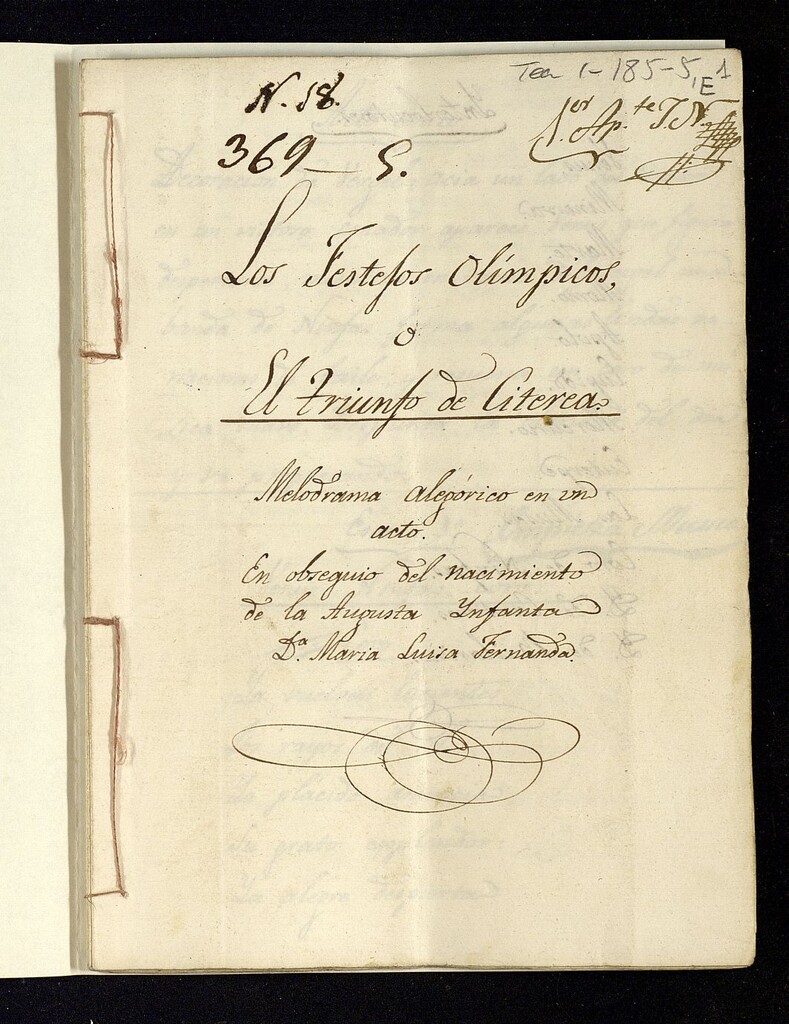 Tea 1-185-5, E 1
N. 18.
1.er Ap.te J. N.
369 - S.
Los Festejos Olímpicos,
o
El triunfo de Citerea.
Melodrama alegórico en un
acto.
En obsequio del nacimiento
de la Augusta Ynfanta
D.a Maria Luisa Fernanda.